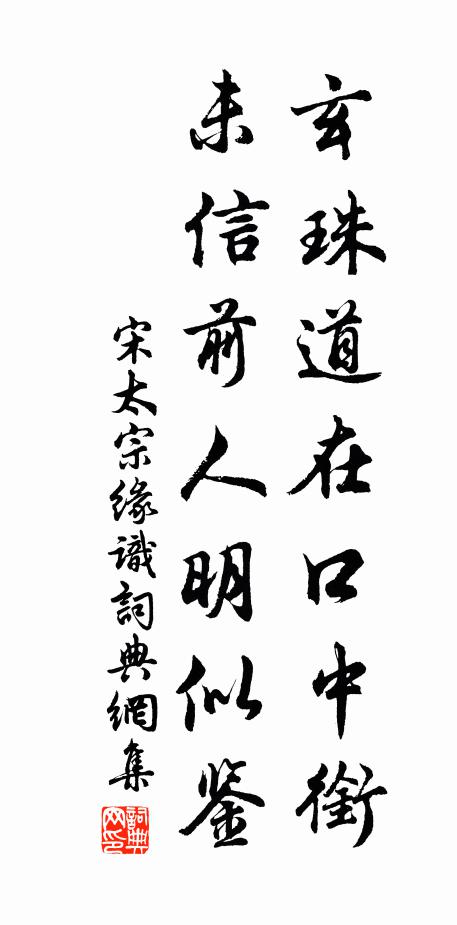 玄珠道在口中銜
未信前人明似鉴
宋太宗緣識詞典網集
詞典網印